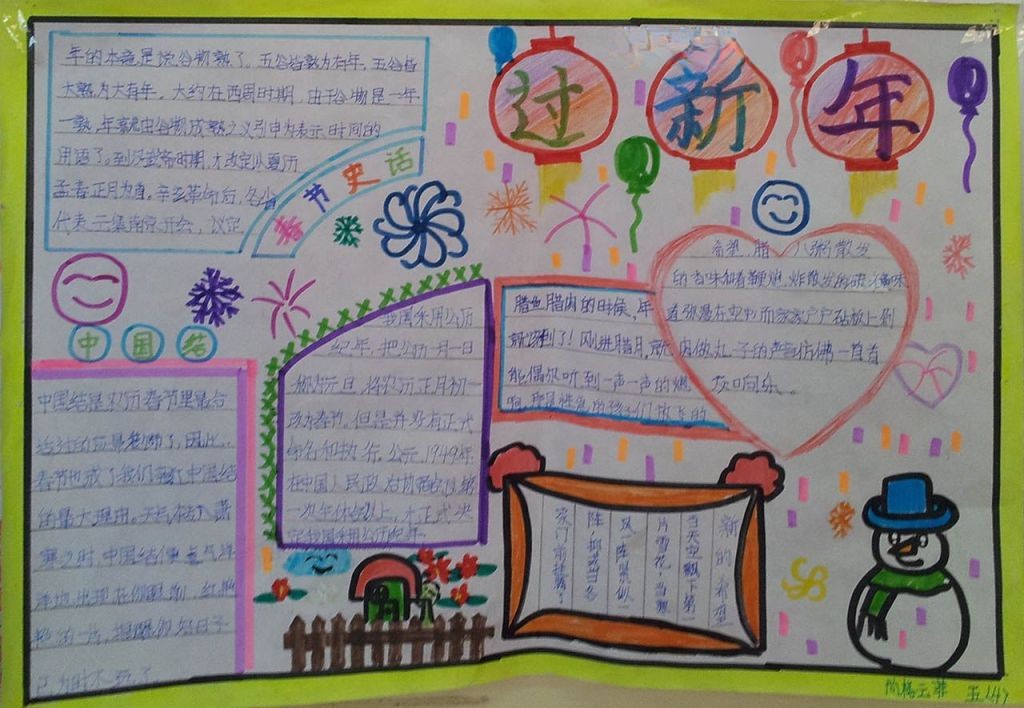 过新年
年的本意是说谷物熟了。五谷皆熟为有年,五谷皆
大熟为大有年。大约在西周时期,由于谷物是一年
一熟,年就由谷物成熟之义引申为表示时间的
用语了。到汉武帝时期,才改定以夏历
孟春正月为首。辛亥革命后,各省
代表云集南京开会,议定
春节史话
我国采用公历
纪年,把公历一月一日
称为元旦,将农历正月初一
改为春节。但是并没有正式
命名和执行。公元1949年
在中国人民政治协
一次
全体会议上,才正式决
定我国采用公历纪年。
中国结
中国结是农历春节里最合
适过的
了,因此,
春节也成了我们
中国结
的最大理由。天
寒之时,中国结便喜气洋
洋地出现在你眼前,红
的一片,提醒你好日子
已为时不远了。
希望 腊 八粥散发
的香味和着鞭炮炸散发的硫磺味
道弥漫在空中而家家户户砧板上剁
肉做丸子的声音仿佛一首首
交响乐。
腊鱼腊肉的时候,年
就到了!刚进腊月,就
能偶尔听到一声一声的炮
响,那是性急的孩子们放的
新的希望
当天空飘下第一
片雪花,当飘
风一阵紧似一
阵,抑或当各
家门前挂
五(4)